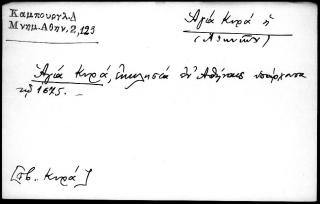 Καμπούρογλ. Δ
Μνημ. Αθην, 2, 123
Αγία Κυρά ἡ
(Αθηνῶν)
Ἁγία Κυρά, ἐκκλησία ἐν Ἀθήναις ὑπάρχουσα
τῷ 1675. _
[πβ. Κυρά]